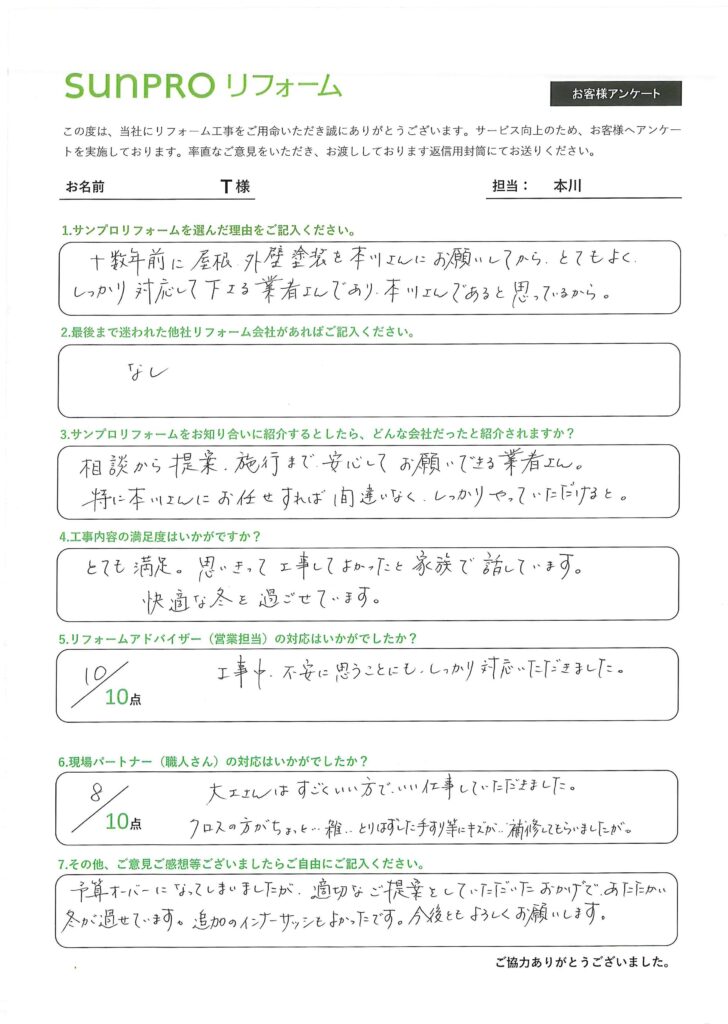 SUNPRO リフォーム
お客様アンケート
この度は、当社にリフォーム工事をご用命いただき誠にありがとうございます。サービス向上のため、お客様へアンケー
トを実施しております。率直なご意見をいただき、お渡ししております返信用封筒にてお送りください。
お名前 T様 担当： 本川
1.サンプロリフォームを選んだ理由をご記入ください。
十数年前に屋根、外壁塗装を本川さんにお願いしてから、とてもよく、
しっかり対応して下さる業者さんであり、本川さんであると思っているから。
2.最後まで迷われた他社リフォーム会社があればご記入ください。
なし
3.サンプロリフォームをお知り合いに紹介するとしたら、どんな会社だったと紹介されますか？
相談から提案、施行まで、安心してお願いできる業者さん。
特に本川さんにお任せすれば間違いなく、しっかりやっていただけると。
4.工事内容の満足度はいかがですか？
とても満足。思いきって工事してよかったと家族で話しています。
快適な冬を過ごせています。
5.リフォームアドバイザー（営業担当）の対応はいかがでしたか？
10/10点 工事中、不安に思うことにも、しっかり対応いただきました。
6.現場パートナー（職人さん）の対応はいかがでしたか？
8/10点 大工さんはすごくいい方で、いい仕事していただきました。
クロスの方がちょっと…雑…とりはずした手すり等にキズが…補修してもらいましたが。
7.その他、ご意見ご感想等ございましたらご自由にご記入ください。
予算オーバーになってしまいましたが、適切なご提案をしていただいたおかげで、あたたかい
冬が過せています。追加のインナーサッシもよかったです。今後ともよろしくお願いします。
ご協力ありがとうございました。